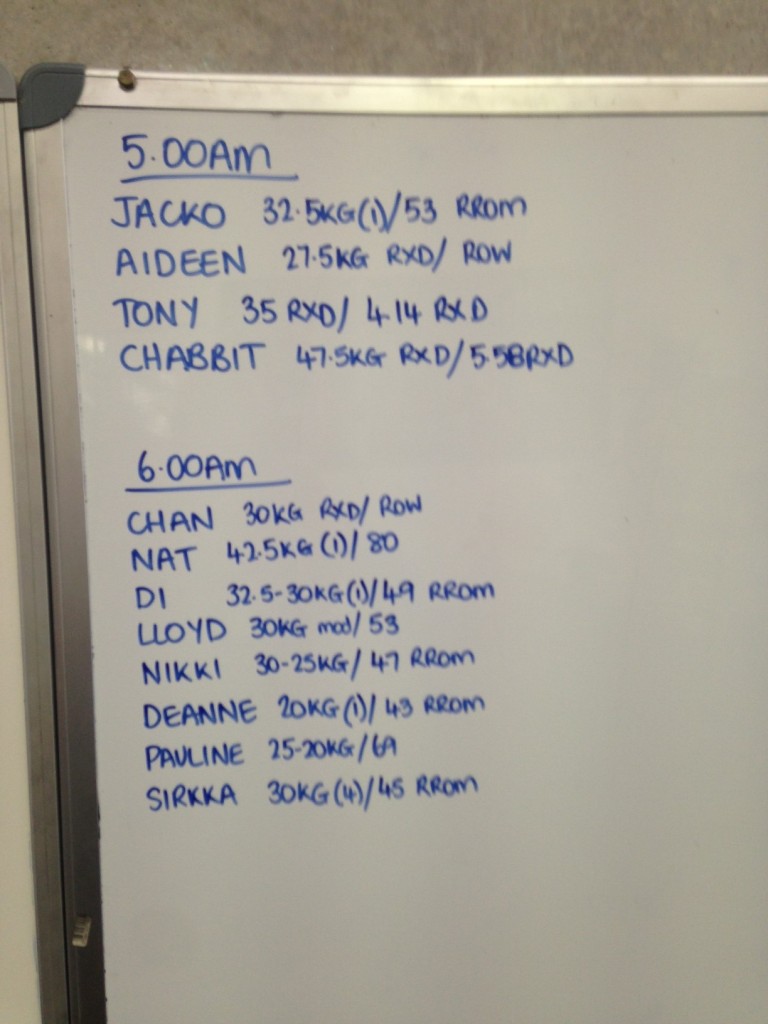 5.00AM
JACKO 32.5KG(1)/53 RROM
AIDEEN 27.5KG RXD/ ROW
TONY 35 RXD/ 4.14 RXD
CHABBIT 47.5KG RXD/5.58RXD
6.00AM
CHAN 30KG RXD/ ROW
NAT 42.5KG (1)/ 80
DI 32.5-30KG(1)/49 RROM
LLOYD 30KG mod/ 53
NIKKI 30-25KG/ 47 RROM
DEANNE 20KG(1)/ 43 RROM
PAULINE 25-20KG/69
SIRKKA 30KG(4)/45 RROM